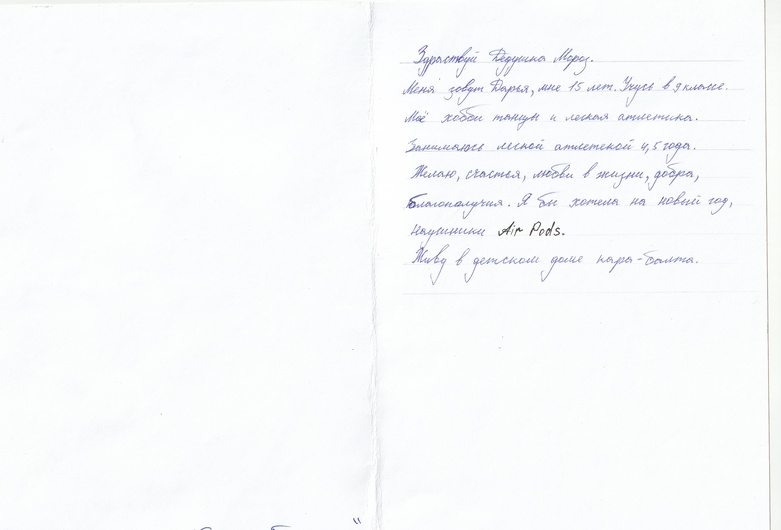 Здравствуй Дедушка Мороз.
Меня зовут Дарья, мне 15 лет. Учусь в 9 классе.
Моё хобби танцы и легкая атлетика.
Занимаюсь легкой атлетекой 4,5 года.
Желаю, счастья, любви в жизни, добра,
благополучия. Я бы хотела на новый год,
наушники Air Pods.
Живу в детском доме кара-балта.